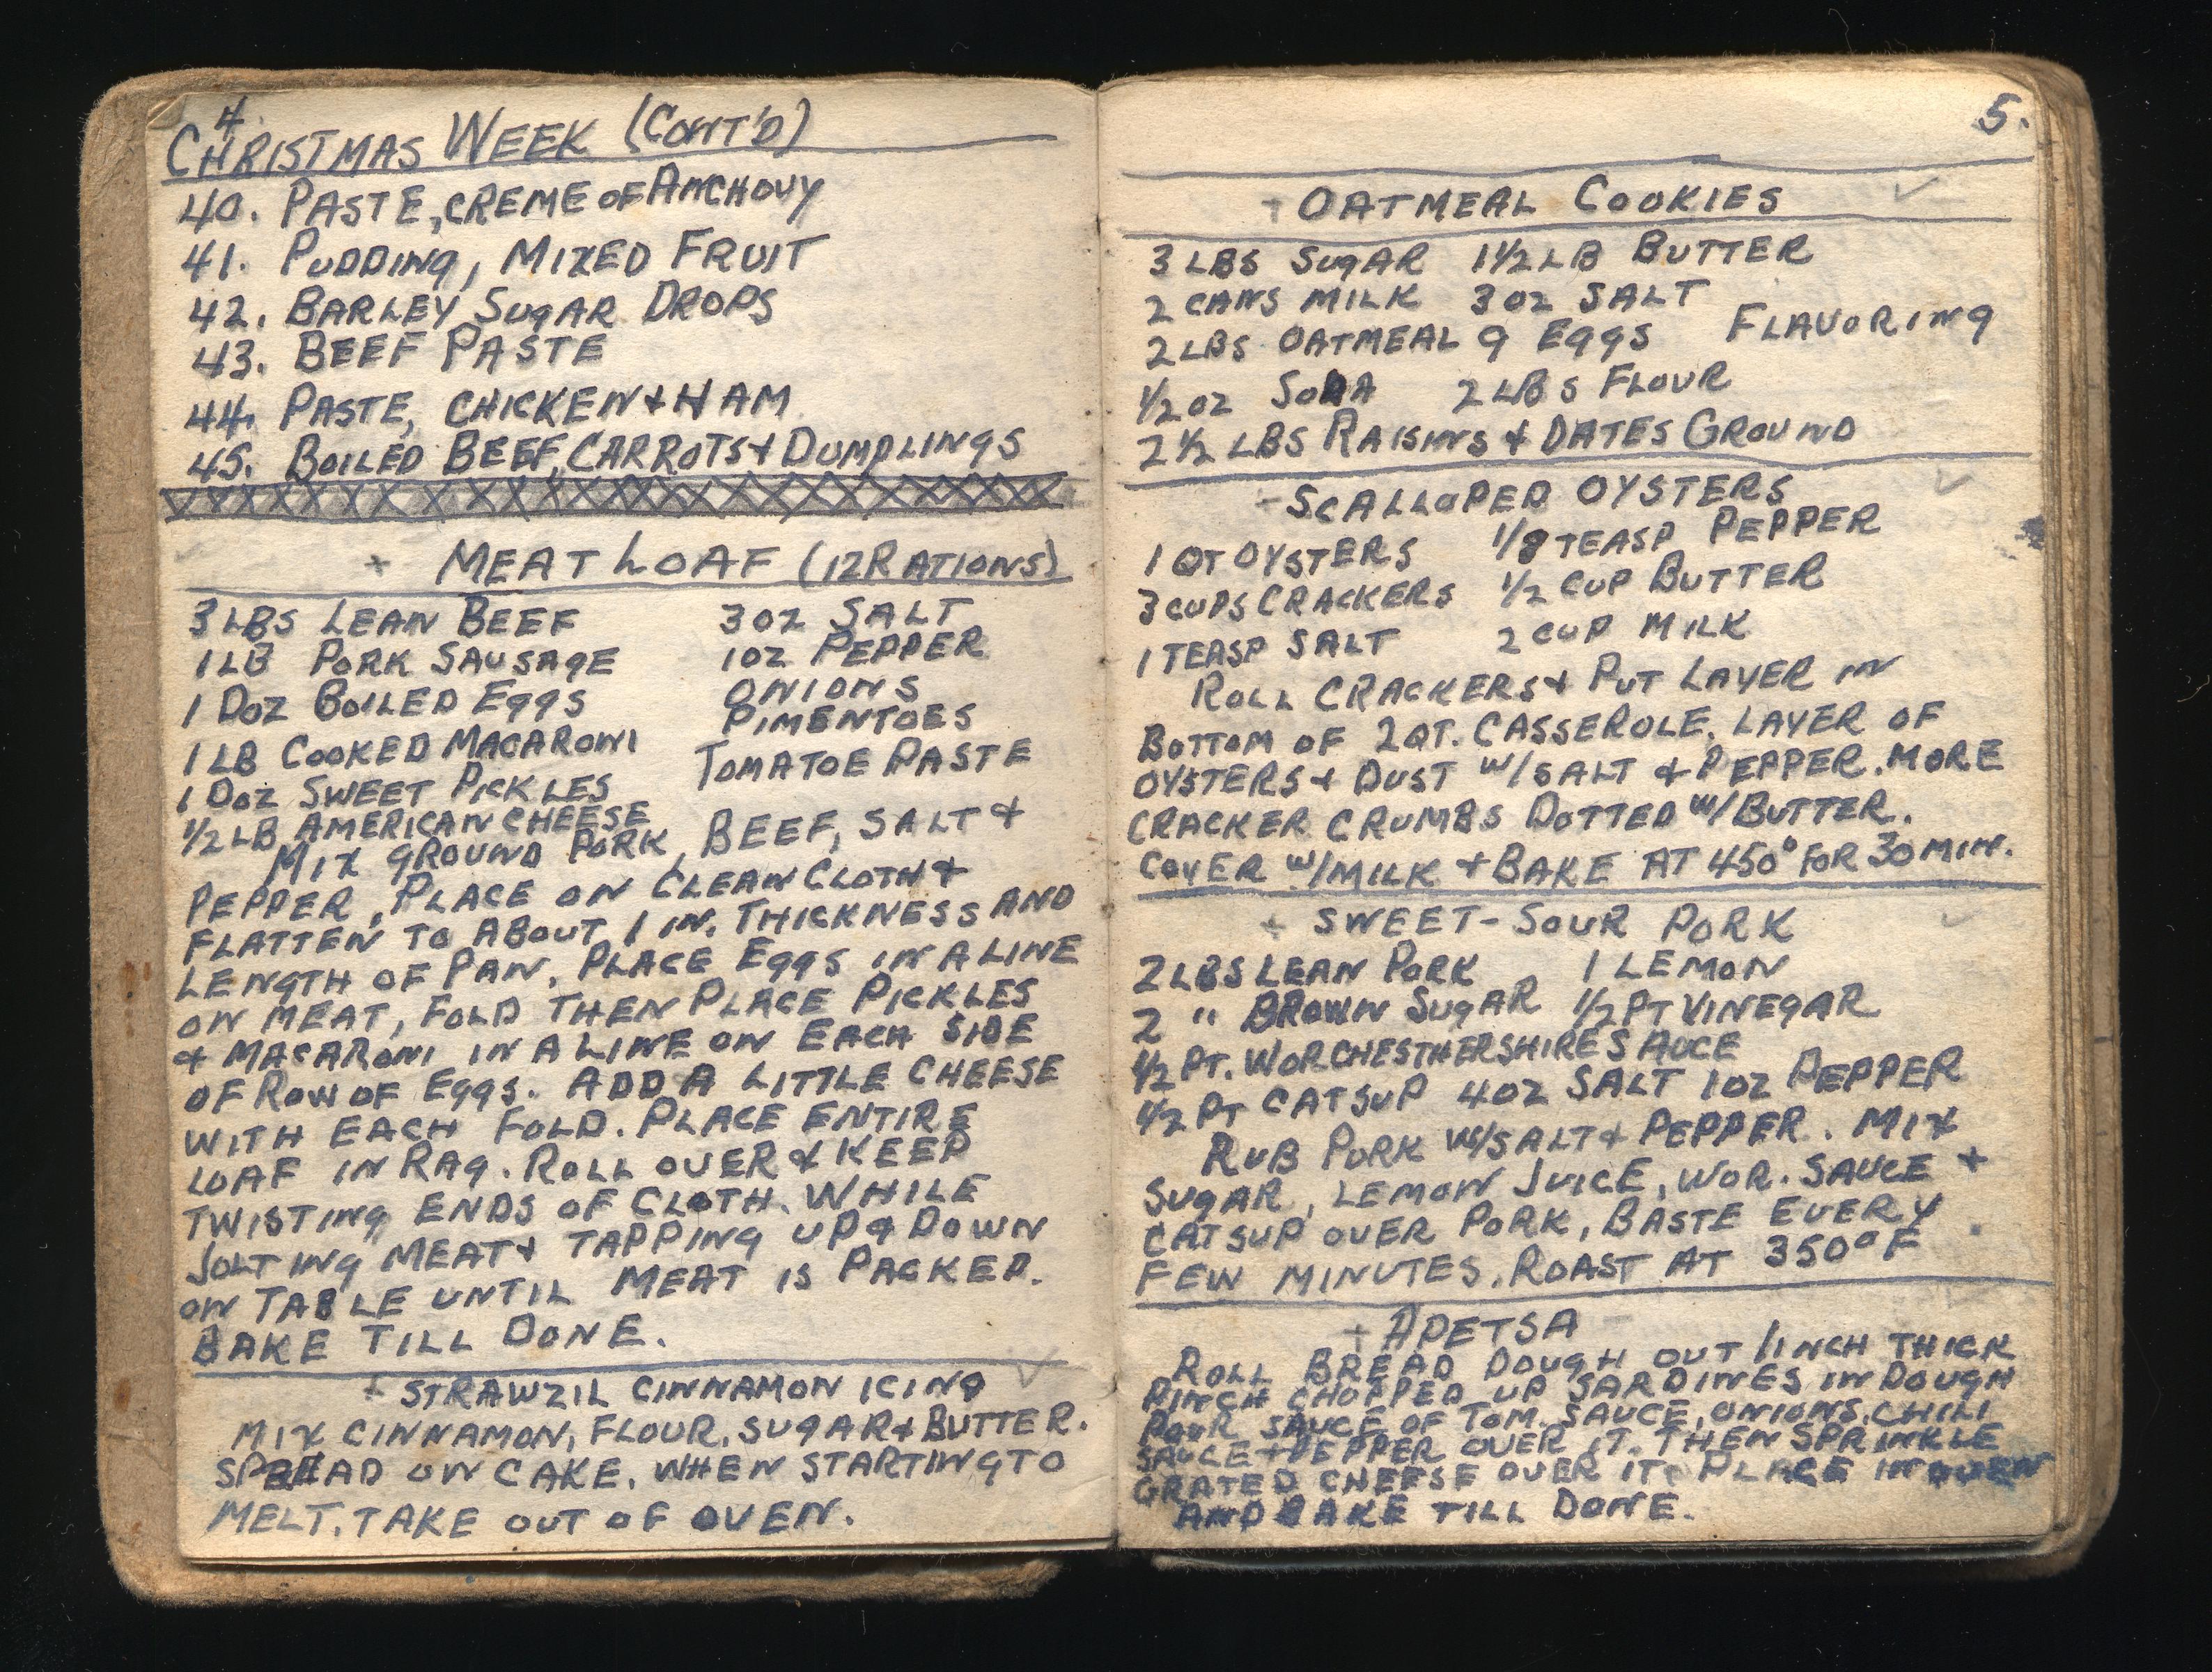 4.
CHRISTMAS WEEK (CONT'D)
40. PASTE, CREME OF ANCHOVY
41. PUDDING, MIXED FRUIT
42. BARLEY SUGAR DROPS
43. BEEF PASTE
44. PASTE, CHICKEN & HAM
45. BOILED BEEF, CARROTS & DUMPLINGS
+ MEAT LOAF (12 RATIONS)
3 LBS LEAN BEEF 3 OZ SALT
1 LB PORK SAUSAGE 1 OZ PEPPER
1 DOZ BOILED EGGS ONIONS
PIMENTOES
1 LB COOKED MACARONI TOMATOE PASTE
1 DOZ SWEET PICKLES
1/2 LB AMERICAN CHEESE
MIX GROUND PORK, BEEF, SALT &
PEPPER, PLACE ON CLEAN CLOTH &
FLATTEN TO ABOUT 1 IN. THICKNESS AND
LENGTH OF PAN. PLACE EGGS IN A LINE
ON MEAT, FOLD THEN PLACE PICKLES
& MACARONI IN A LINE ON EACH SIDE
OF ROW OF EGGS. ADD A LITTLE CHEESE
WITH EACH FOLD. PLACE ENTIRE
LOAF IN RAG. ROLL OVER & KEEP
TWISTING ENDS OF CLOTH. WHILE
JOLTING MEAT & TAPPING UP & DOWN
ON TABLE UNTIL MEAT IS PACKED.
BAKE TILL DONE.
+ STRAWZIL CINNAMON ICING
MIX CINNAMON, FLOUR, SUGAR & BUTTER.
SPREAD ON CAKE. WHEN STARTING TO
MELT, TAKE OUT OF OVEN.
5.
+ OATMEAL COOKIES
3 LBS SUGAR 1 1/2 LB BUTTER
2 CANS MILK 3 OZ SALT
2 LBS OATMEAL 9 EGGS FLAVORING
1/2 OZ SODA 2 LBS FLOUR
2 1/2 LBS RAISINS & DATES GROUND
+ SCALLOPED OYSTERS
1 QT OYSTERS 1/8 TEASP PEPPER
3 CUPS CRACKERS 1/2 CUP BUTTER
1 TEASP SALT 2 CUP MILK
ROLL CRACKERS & PUT LAYER IN
BOTTOM OF 2 QT. CASSEROLE. LAYER OF
OYSTERS & DUST W/SALT & PEPPER. MORE
CRACKER CRUMBS DOTTED W/BUTTER.
COVER W/MILK & BAKE AT 450° FOR 30 MIN.
+ SWEET-SOUR PORK
2 LBS LEAN PORK 1 LEMON
2 " BROWN SUGAR 1/2 PT VINEGAR
1/2 PT. WORCHESTHERSHIRE SAUCE
1/2 PT CATSUP 4 OZ SALT 1 OZ PEPPER
RUB PORK W/SALT & PEPPER. MIX
SUGAR, LEMON JUICE, WOR. SAUCE &
CATSUP OVER PORK, BASTE EVERY
FEW MINUTES. ROAST AT 350° F
+ APETSA
ROLL BREAD DOUGH OUT 1 INCH THICK
PINCH CHOPPED UP SARDINES IN DOUGH
POUR SAUCE OF TOM. SAUCE, ONIONS, CHILI
SAUCE & PEPPER OVER IT. THEN SPRINKLE
GRATED CHEESE OVER IT. PLACE IN OVEN
AND BAKE TILL DONE.